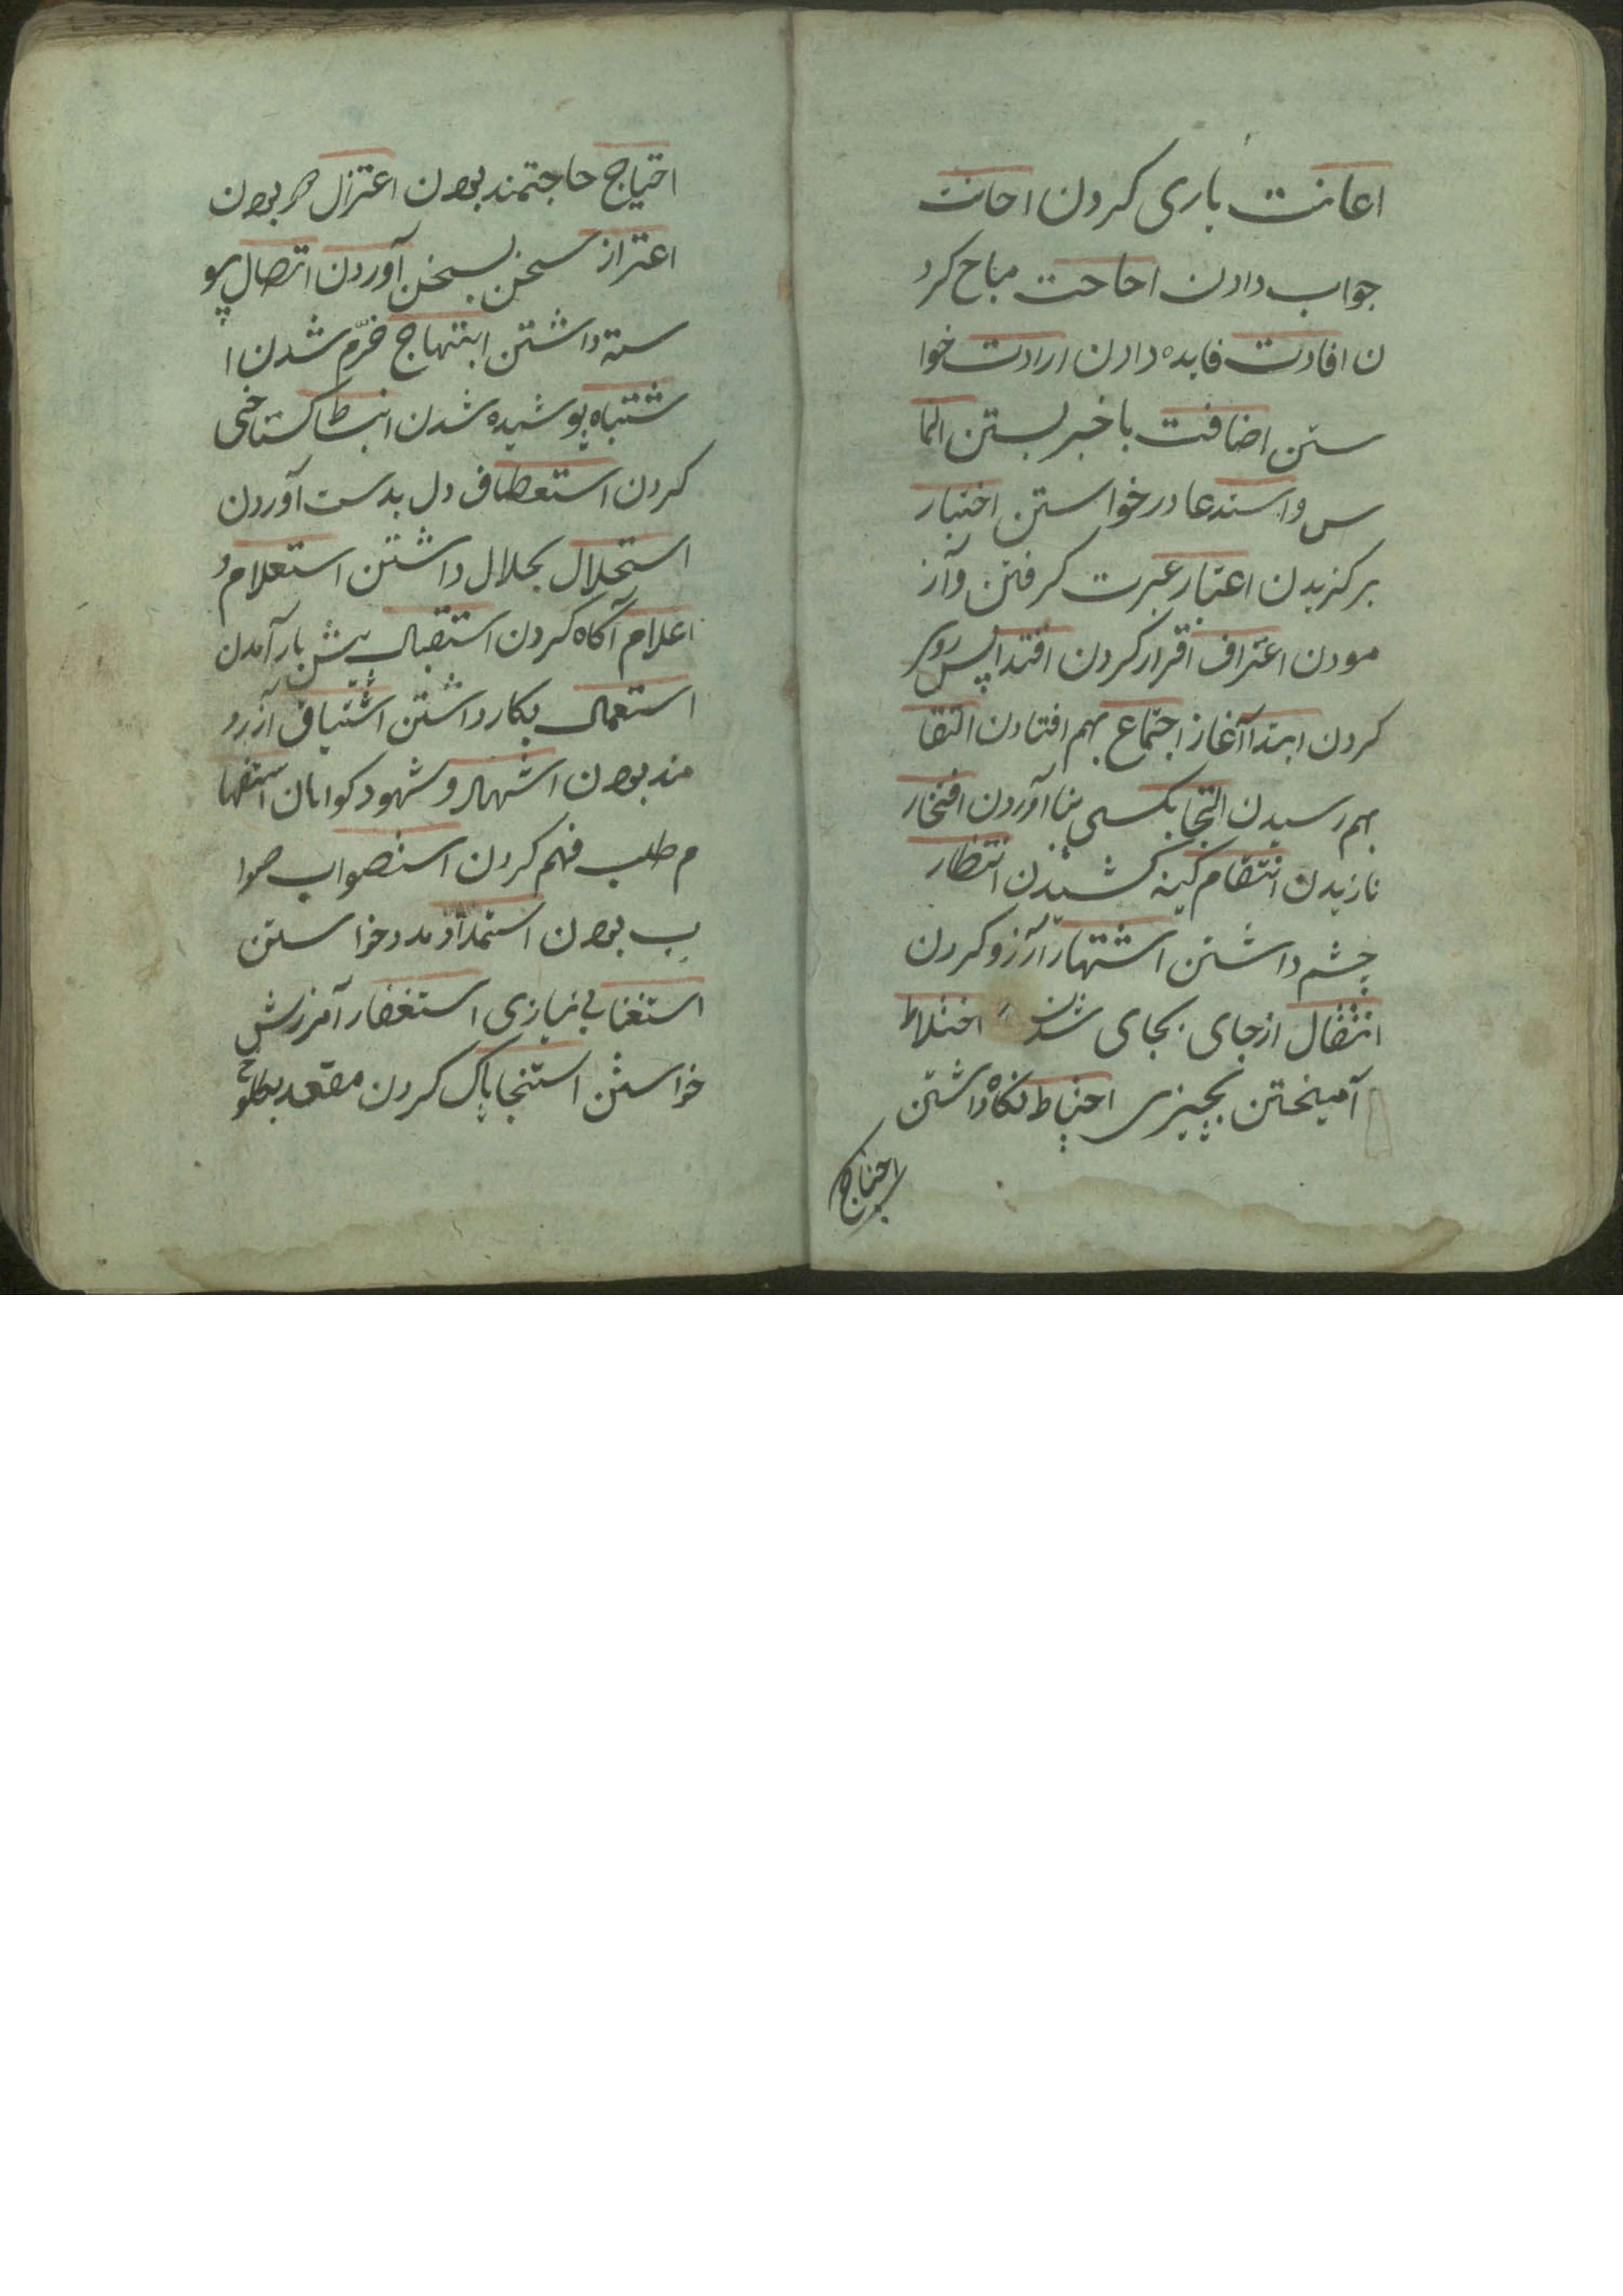 اعانت یاری کردن احانت
جواب دادن احاحت مباح کرد
ن افادت فایده دادن ارادت خوا
ستن اضافت باخبر بستن التما
س و استدعا درخواستن اختیار
برکزیدن اعتبار عبرت کرفتن وآز
مودن اعتراف اقرار کردن اقتدا پس روی
کردن ابتدا آغاز اجتماع بهم افتادن التقا
بهم رسیدن التجا بکسی پنا آوردن افتخار
نازیدن انتقام کینه کشیدن انتظار
چشم داشتن اشتهار آرزو کردن
انتقال ازجای بجای شدن اختلاط
آمیختن بچیزی احتیاط نکاه داشتن
احتیاج
احتیاج حاجتمند بودن اعتزال بودن
اعتراز سخن بسخن آوردن اتصال پیو
سته داشتن ابتهاج خرّم شدن ا
شتباه پوشیده شدن انبساط کستاخی
کردن استعطاف دل بدست آوردن
استحلال بحلال داشتن استعلام و
اعلام آکاه کردن استقبال پیش باز آمدن
استعمال بکار داشتن اشتیاق آرزو
مند بودن اشهاد و شهود کواهان استفها
م طلب فهم کردن استصواب صوا
ب بودن استمداد مدد خواستن
استغنا بی نیازی استغفار آمرزش
خواستن استنجا پاک کردن مقعد بکلوخ